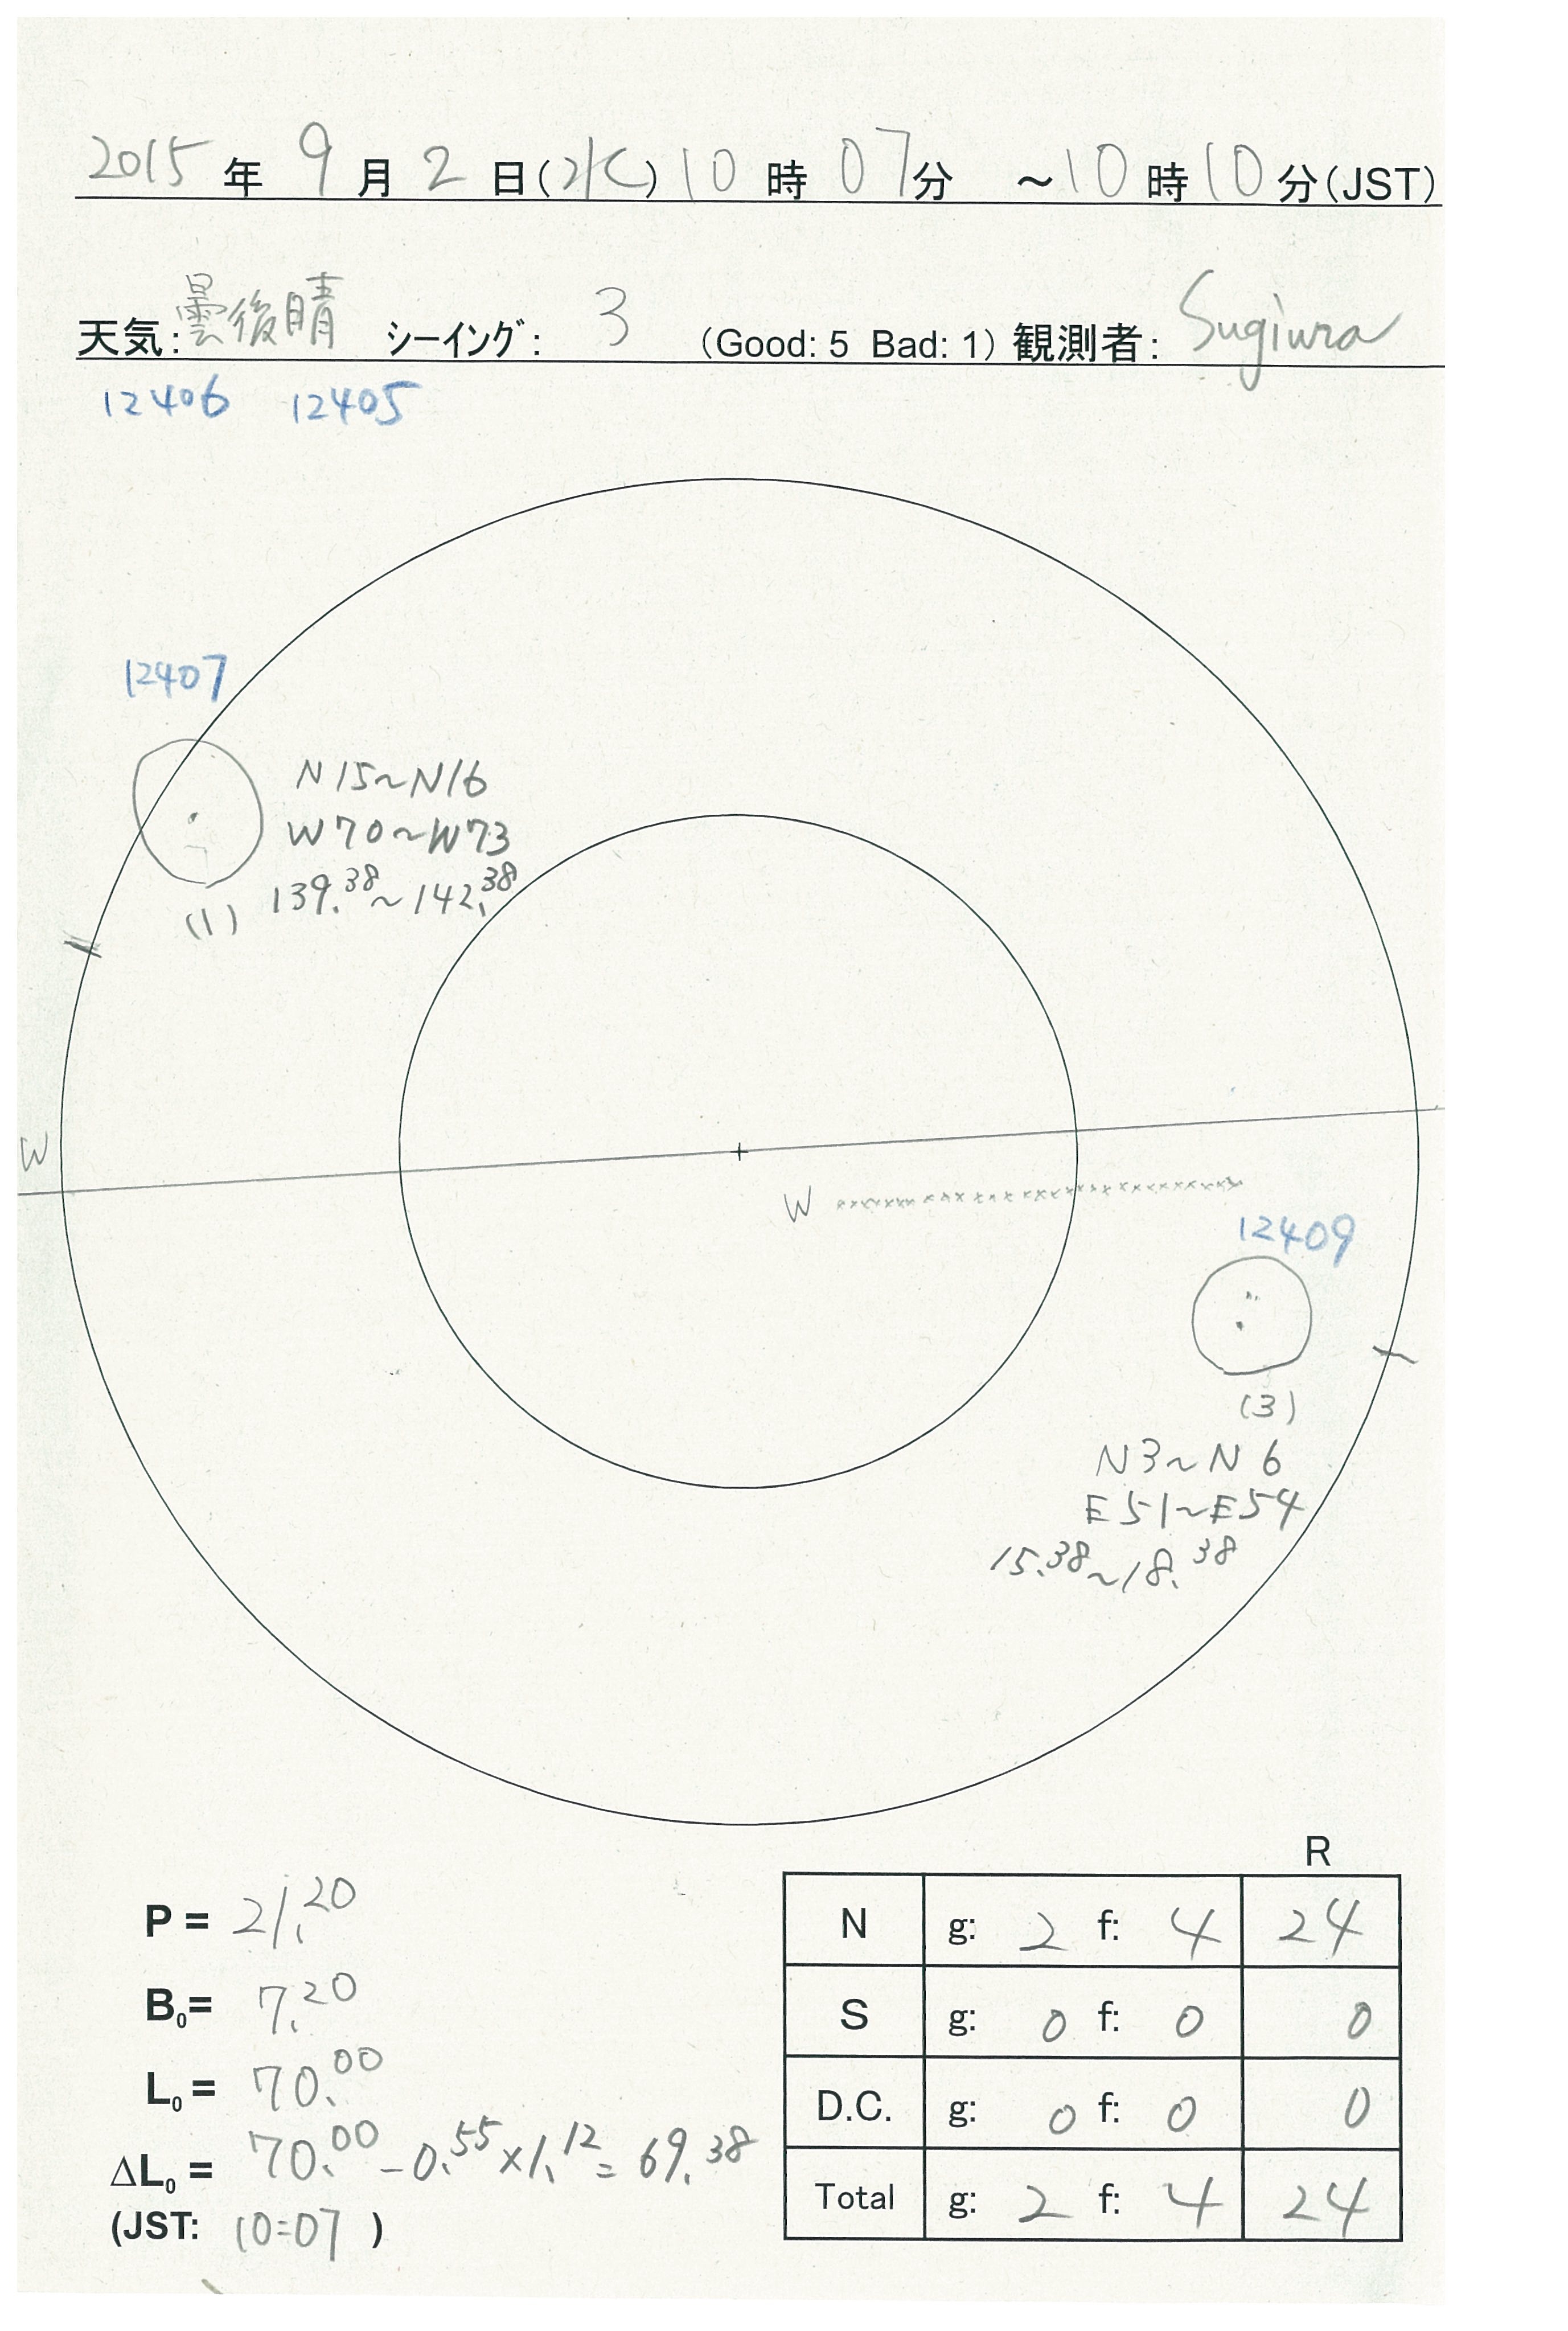 2015年 9月 2日(水) 10時 07分 ～10時10分(JST)
天気:曇後晴 シーイング: 3 (Good: 5 Bad: 1) 観測者: Sugiura
12406 12405
12407
N15~N16
W70~W73
139.38~142.38
(1)
W
W
12409
(3)
N3~N6
E51~E54
15.38~18.38
R
P = 21.20
B0= 7.20
L0= 70.00
ΔL0= 70.00-0.55×1.12=69.38
(JST: 10:07 )
N g: 2 f: 4 24
S g: 0 f: 0 0
D.C. g: 0 f: 0 0
Total g: 2 f: 4 24